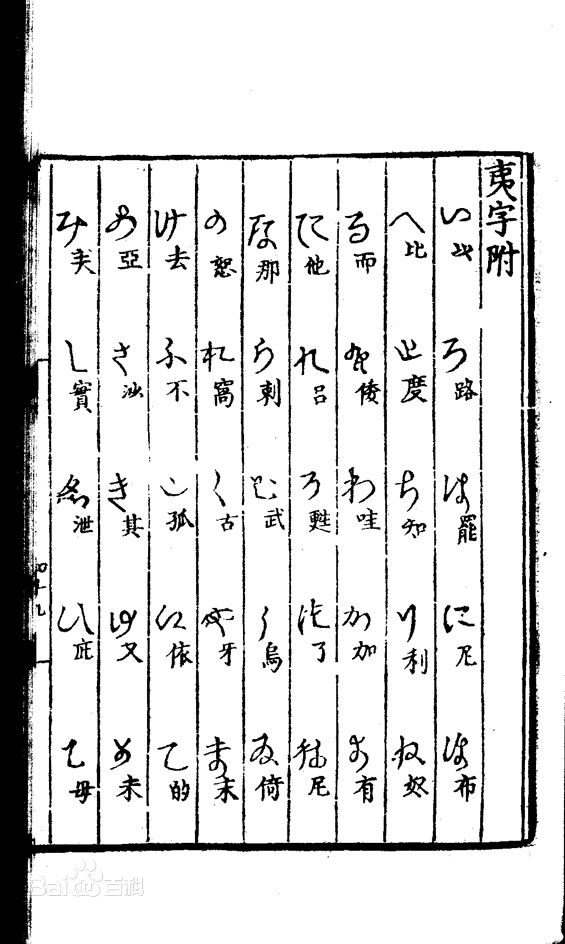 夷字附
い ろ路 は罷 に尼 ほ布
へ比 と度 ち知 り利 ぬ奴
る而 を倭 わ哇 か加 よ有
た他 れ呂 そ甦 つ了 ね尼
な那 ら剌 む武 う烏 ゐ倚
の恕 お窩 く古 や牙 ま末
け去 ふ不 こ孤 え依 て的
あ亞 さ沙 き其 ゆ又 め未
み美 し實 ゑ泄 ひ庇 も毋
Baidu百科